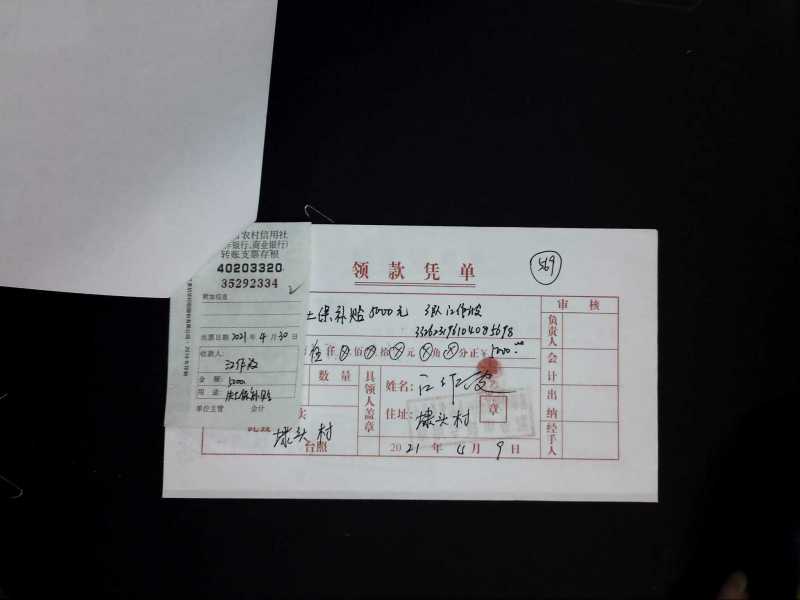 农村信用社
银行、商业银行)
转账支票存根
40203320
35292334
附加信息
出票日期 2021 年 4 月 30 日
收款人:
江作波
金 额: 5000
用 途:
单位主管 会计
领款凭单
569
土保补贴 5000元 3队 江作波
仟 佰 拾 元 角 分正 ¥ 5000.00
数 量
具领人盖章
姓名: 江作波
住址: 墚头村
章
墚头村
台照
2021 年 4 月 9 日
审 核
负责人
会计
出纳
经手人